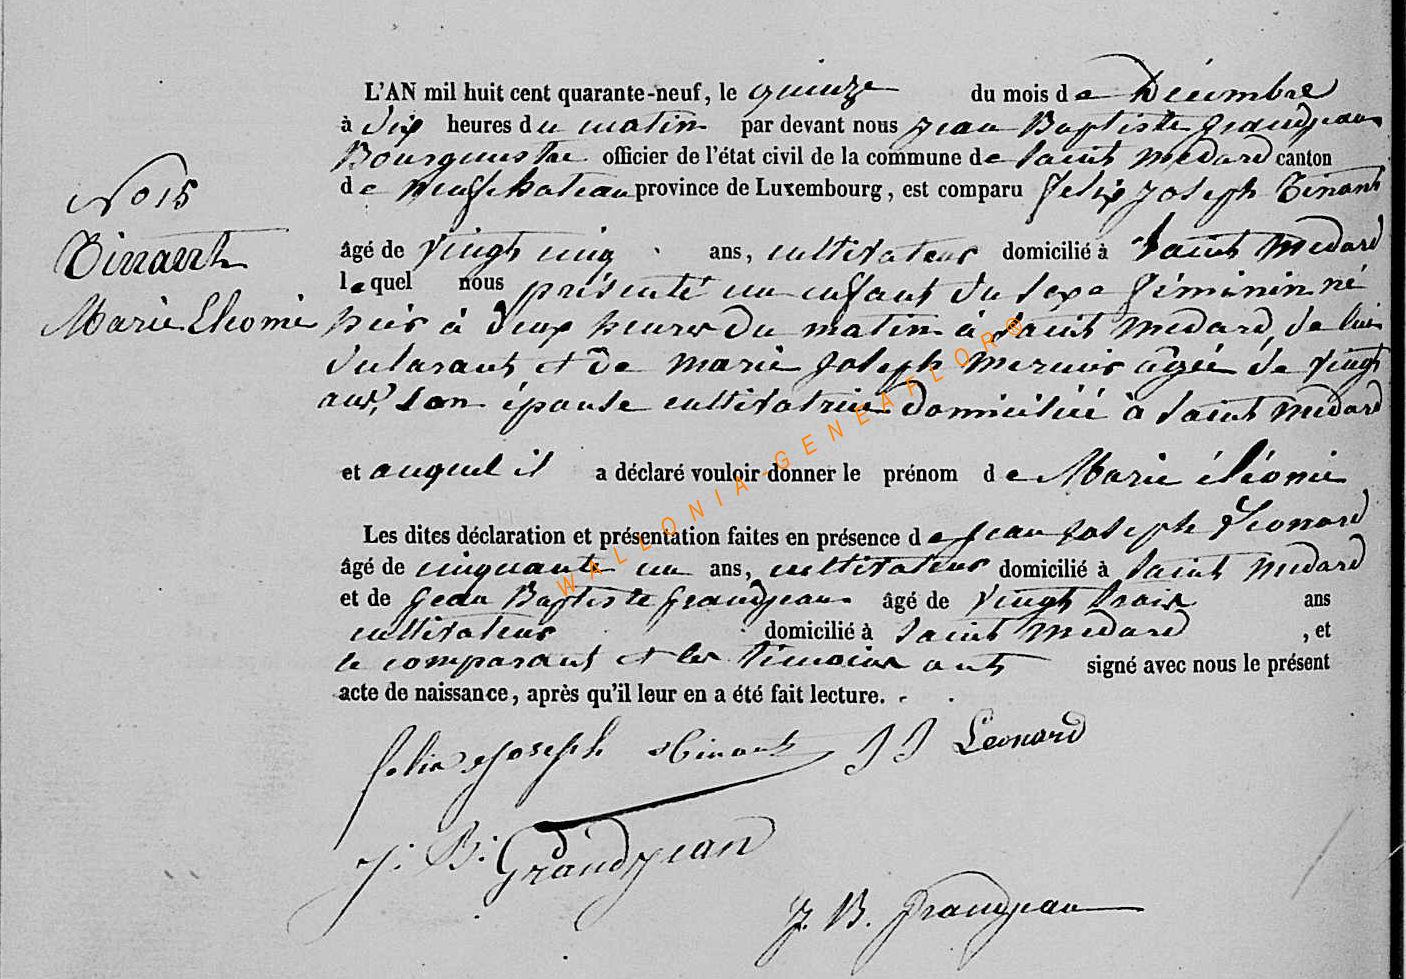 L'AN mil huit cent quarante-neuf, le quinze du mois de Décembre
à dix heures du matin par devant nous Jean Baptiste Grandjean
Bourgmestre officier de l'état civil de la commune de Saint Medard canton
de Neufchateau province de Luxembourg, est comparu Felix Joseph Tinant
No 15
Tinant
Marie Eléonie
âgé de vingt cinq ans, cultivateur domicilié à Saint Medard
lequel nous présenté un enfant du sexe féminin né
hier à deux heures du matin à Saint Medard, de lui
déclarant et de Marie Joseph agée de vingt
ans, son épouse cultivatrice domiciliée à Saint Medard
et auquel il a déclaré vouloir donner le prénom de Marie éléonie
Les dites déclaration et présentation faites en présence de Jean Joseph Leonard
âgé de cinquante un ans, cultivateur domicilié à Saint Medard
et de Jean Baptiste Grandjean âgé de vingt trois ans
cultivateur domicilié à Saint Medard , et
le comparant et les témoins ont signé avec nous le présent
acte de naissance, après qu'il leur en a été fait lecture.
felix Joseph Tinant J J Leonard
J. B. Grandjean
J. B. Grandjean
WALLONIA-GENEAFLOR©